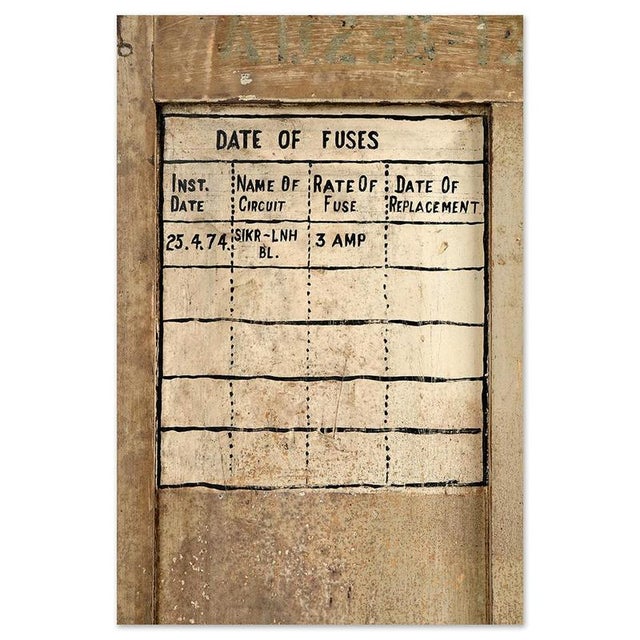 DATE OF FUSES
INST. DATE
NAME OF CIRCUIT
RATE OF FUSE
DATE OF REPLACEMENT
25.4.74.
SIKR-LNH BL.
3 AMP